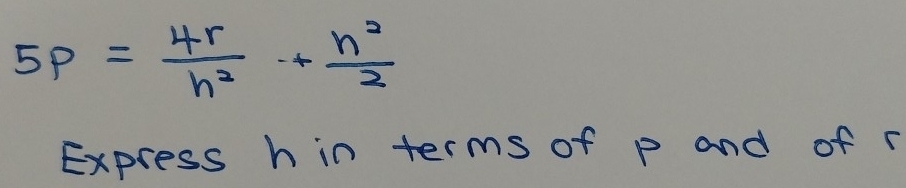 5P = 4r/h² + h²/2
Express h in terms of p and of r